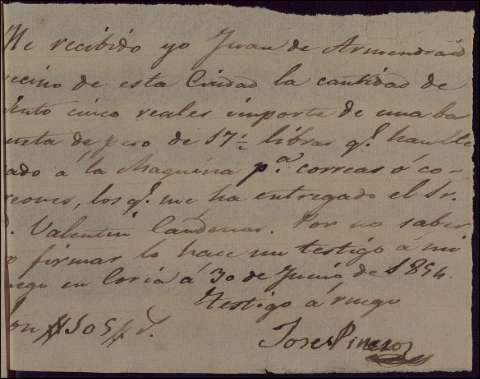 He recibido yo Juan de Armendraiz
vecino de esta Ciudad la cantidad de
ciento cinco reales importe de una ba
queta de peso de 17½ libras q.e han lle
vado á la Maquina p.a correas ó co-
rreones, los q.e me ha entregado el Sr.
D. Valentin Cardenas. Por no saber
yo firmar lo hace un testigo á mi
ruego en Coria á 30 de Junio de 1854.
Testigo á ruego
Son # 105 #
Jose Pinero